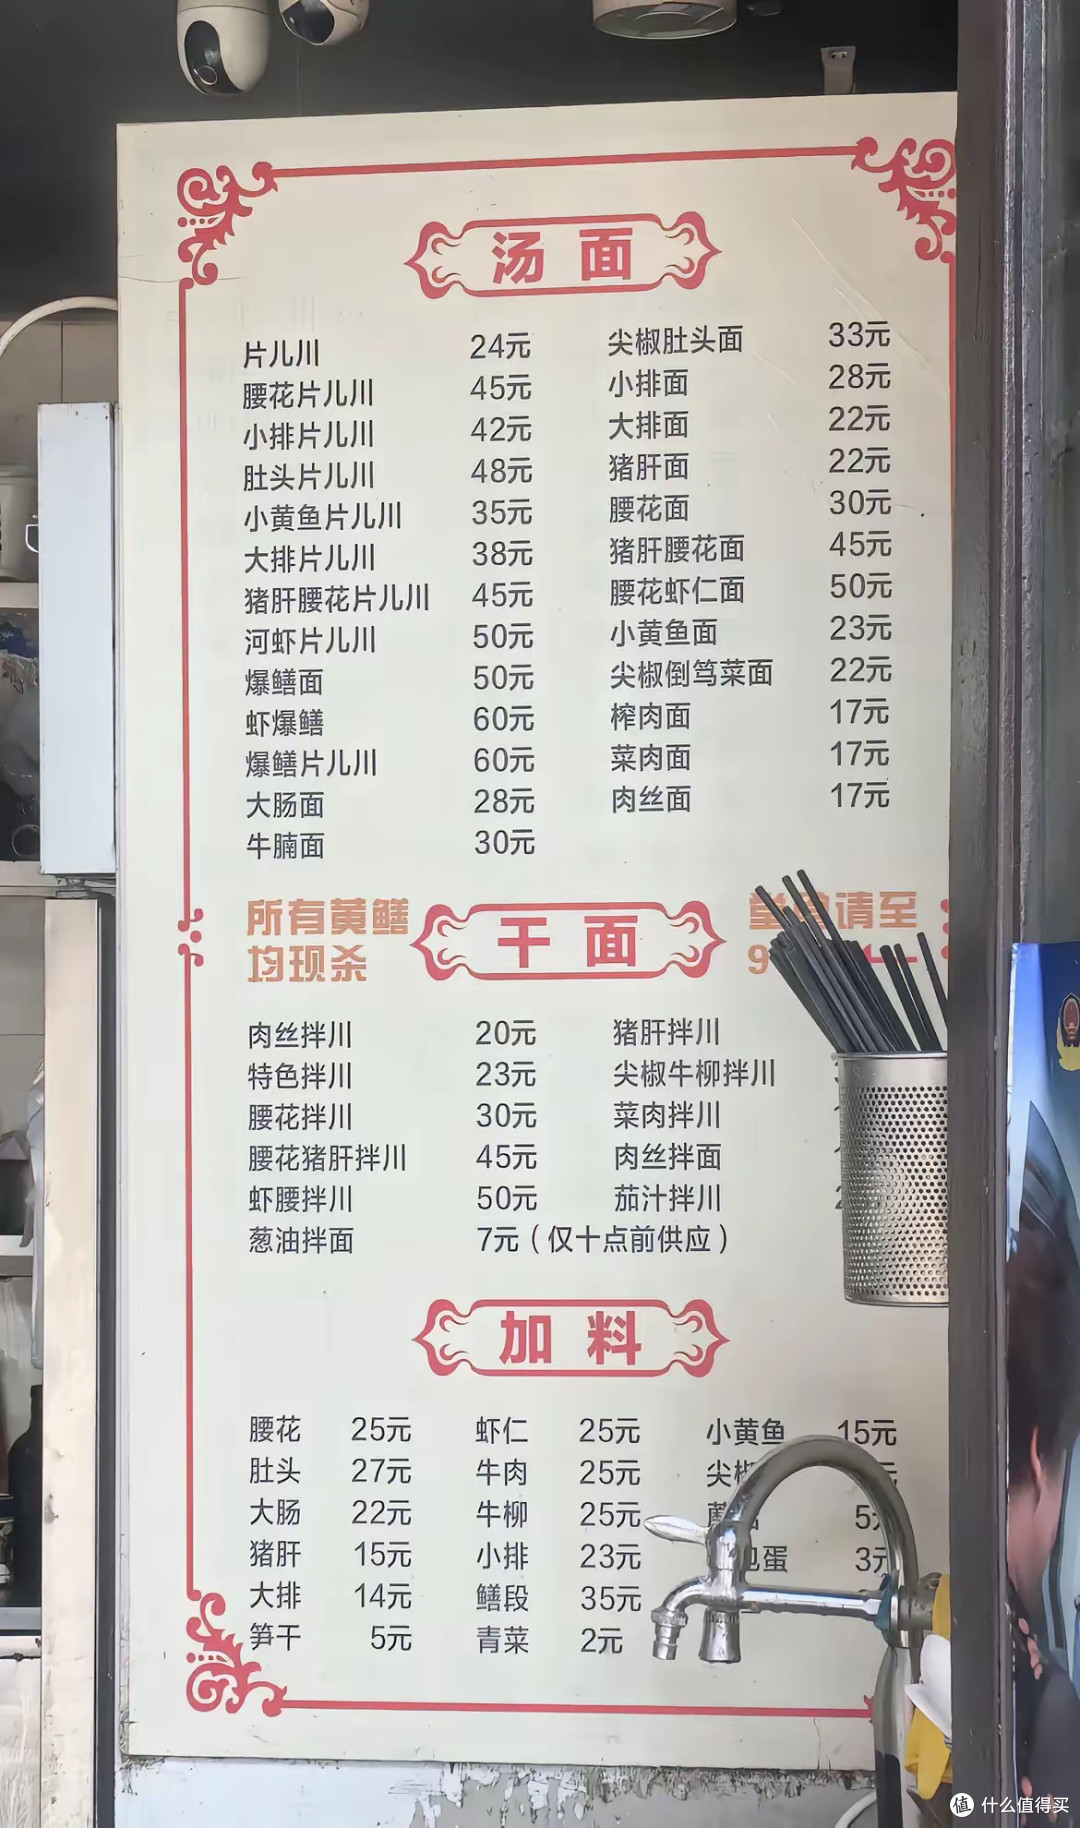 汤面
片儿川 24元
腰花片儿川 45元
小排片儿川 42元
肚头片儿川 48元
小黄鱼片儿川 35元
大排片儿川 38元
猪肝腰花片儿川 45元
河虾片儿川 50元
爆鳝面 50元
虾爆鳝 60元
爆鳝片儿川 60元
大肠面 28元
牛腩面 30元
尖椒肚头面 33元
小排面 28元
大排面 22元
猪肝面 22元
腰花面 30元
猪肝腰花面 45元
腰花虾仁面 50元
小黄鱼面 23元
尖椒倒笃菜面 22元
榨肉面 17元
菜肉面 17元
肉丝面 17元
所有黄鳝
均现杀
干面
请至
9
肉丝拌川 20元
特色拌川 23元
腰花拌川 30元
腰花猪肝拌川 45元
虾腰拌川 50元
葱油拌面 7元（仅十点前供应）
猪肝拌川
尖椒牛柳拌川
菜肉拌川
肉丝拌面
茄汁拌川
加料
腰花 25元
肚头 27元
大肠 22元
猪肝 15元
大排 14元
笋干 5元
虾仁 25元
牛肉 25元
牛柳 25元
小排 23元
鳝段 35元
青菜 2元
小黄鱼 15元
尖椒
5元
蛋 3元
值 什么值得买